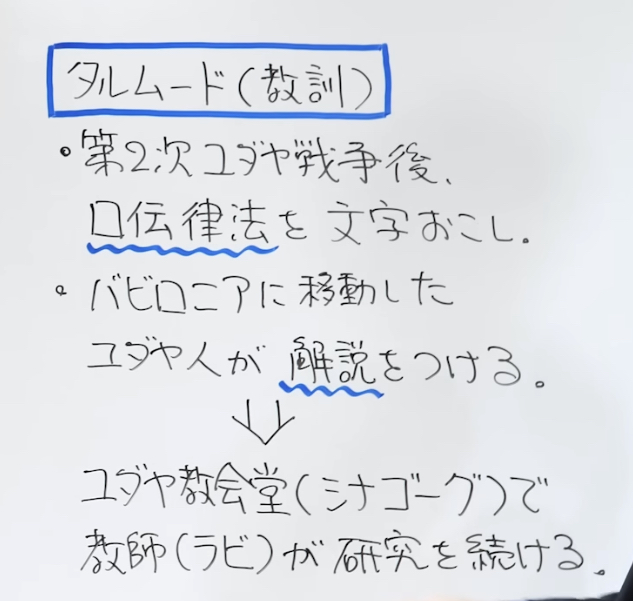 タルムード(教訓)
・第2次ユダヤ戦争後、
口伝律法を文字おこし。
・バビロニアに移動した
ユダヤ人が解説をつける。
⇓
ユダヤ教会堂(シナゴーグ)で
教師(ラビ)が研究を続ける。